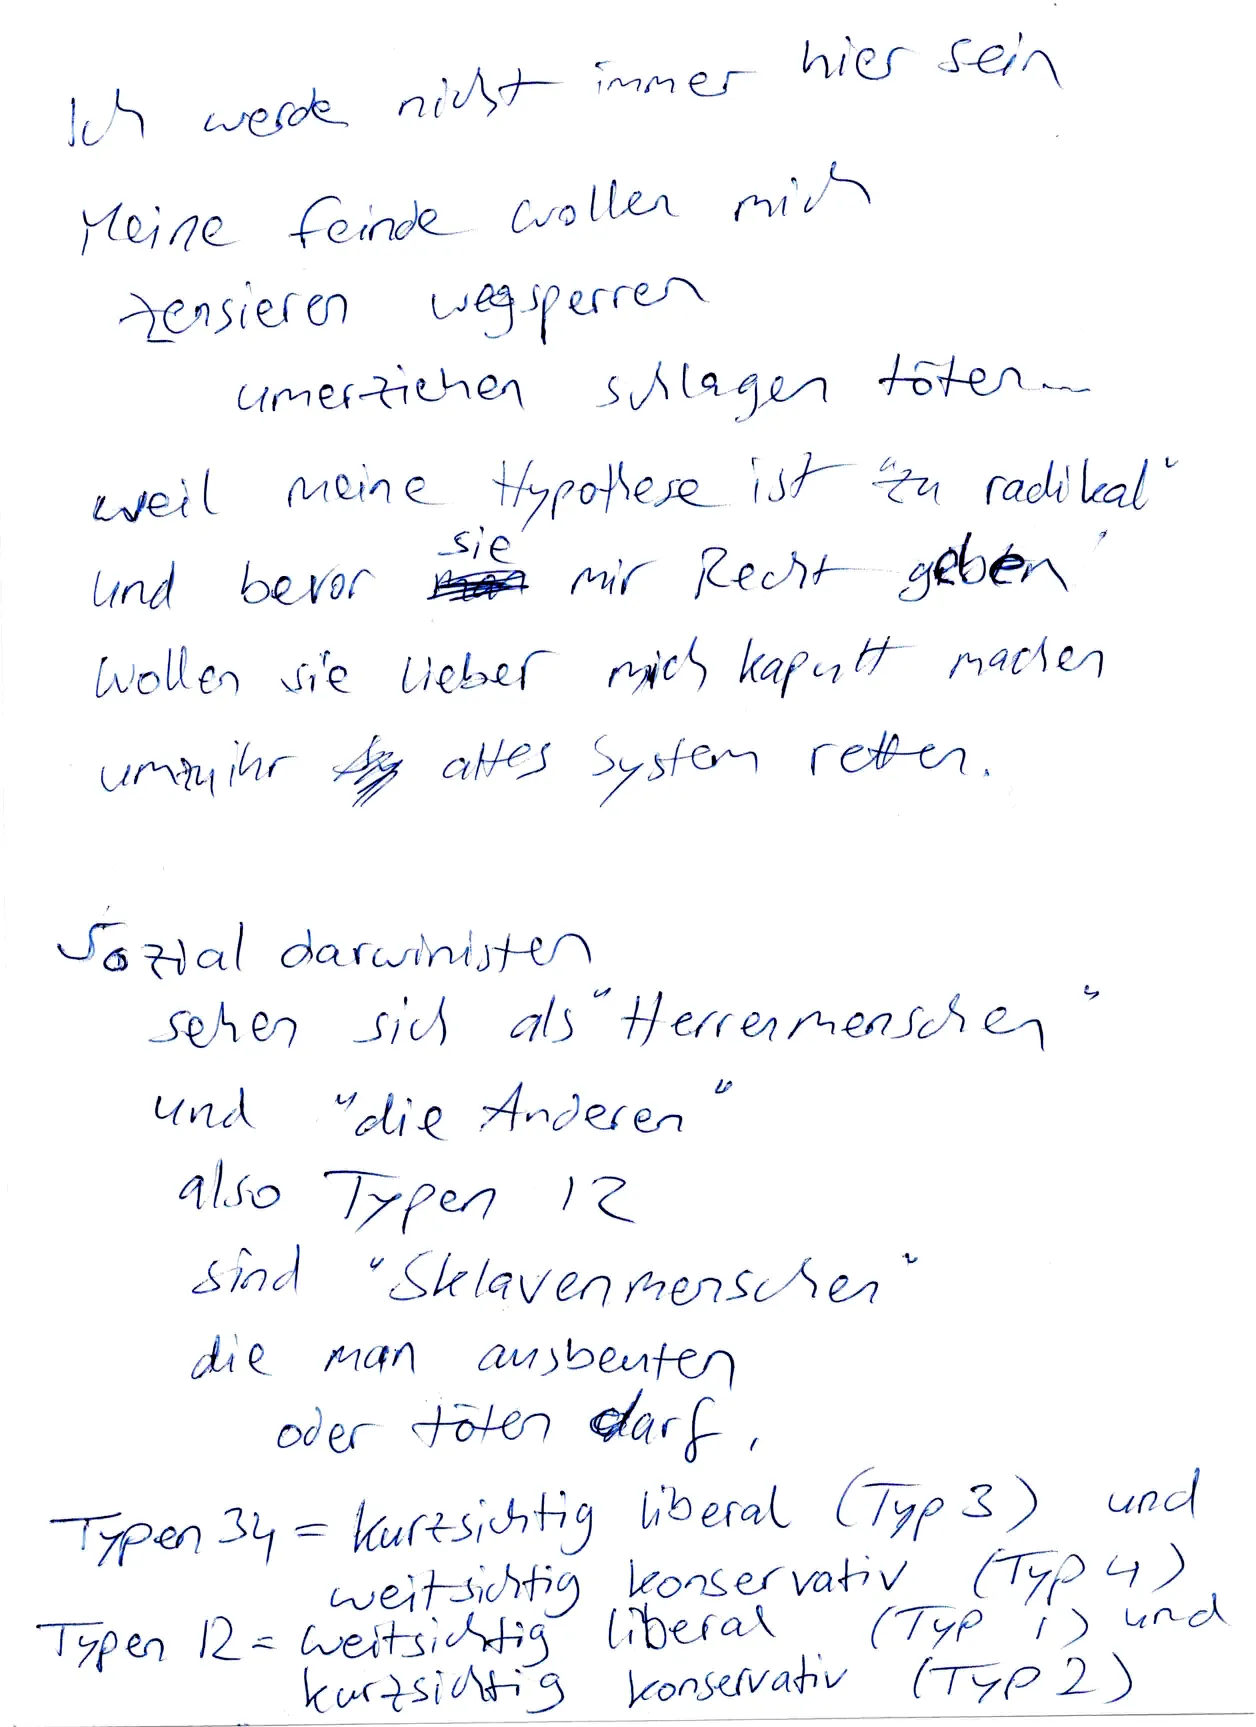 Ich werde nicht immer hier sein
Meine Feinde wollen mich
zensieren wegsperren
umerziehen schlagen töten...
weil meine Hypothese ist "zu radikal"
und bevor sie mir Recht geben
wollen sie lieber mich kaputt machen
um zu ihr altes System retten.
Sozialdarwinisten
sehen sich als "Herrenmenschen"
und "die Anderen"
also Typen 12
sind "Sklavenmenschen"
die man ausbeuten
oder töten darf.
Typen 34 = kurzsichtig liberal (Typ 3) und
weitsichtig konservativ (Typ 4)
Typen 12 = weitsichtig liberal (Typ 1) und
kurzsichtig konservativ (Typ 2)